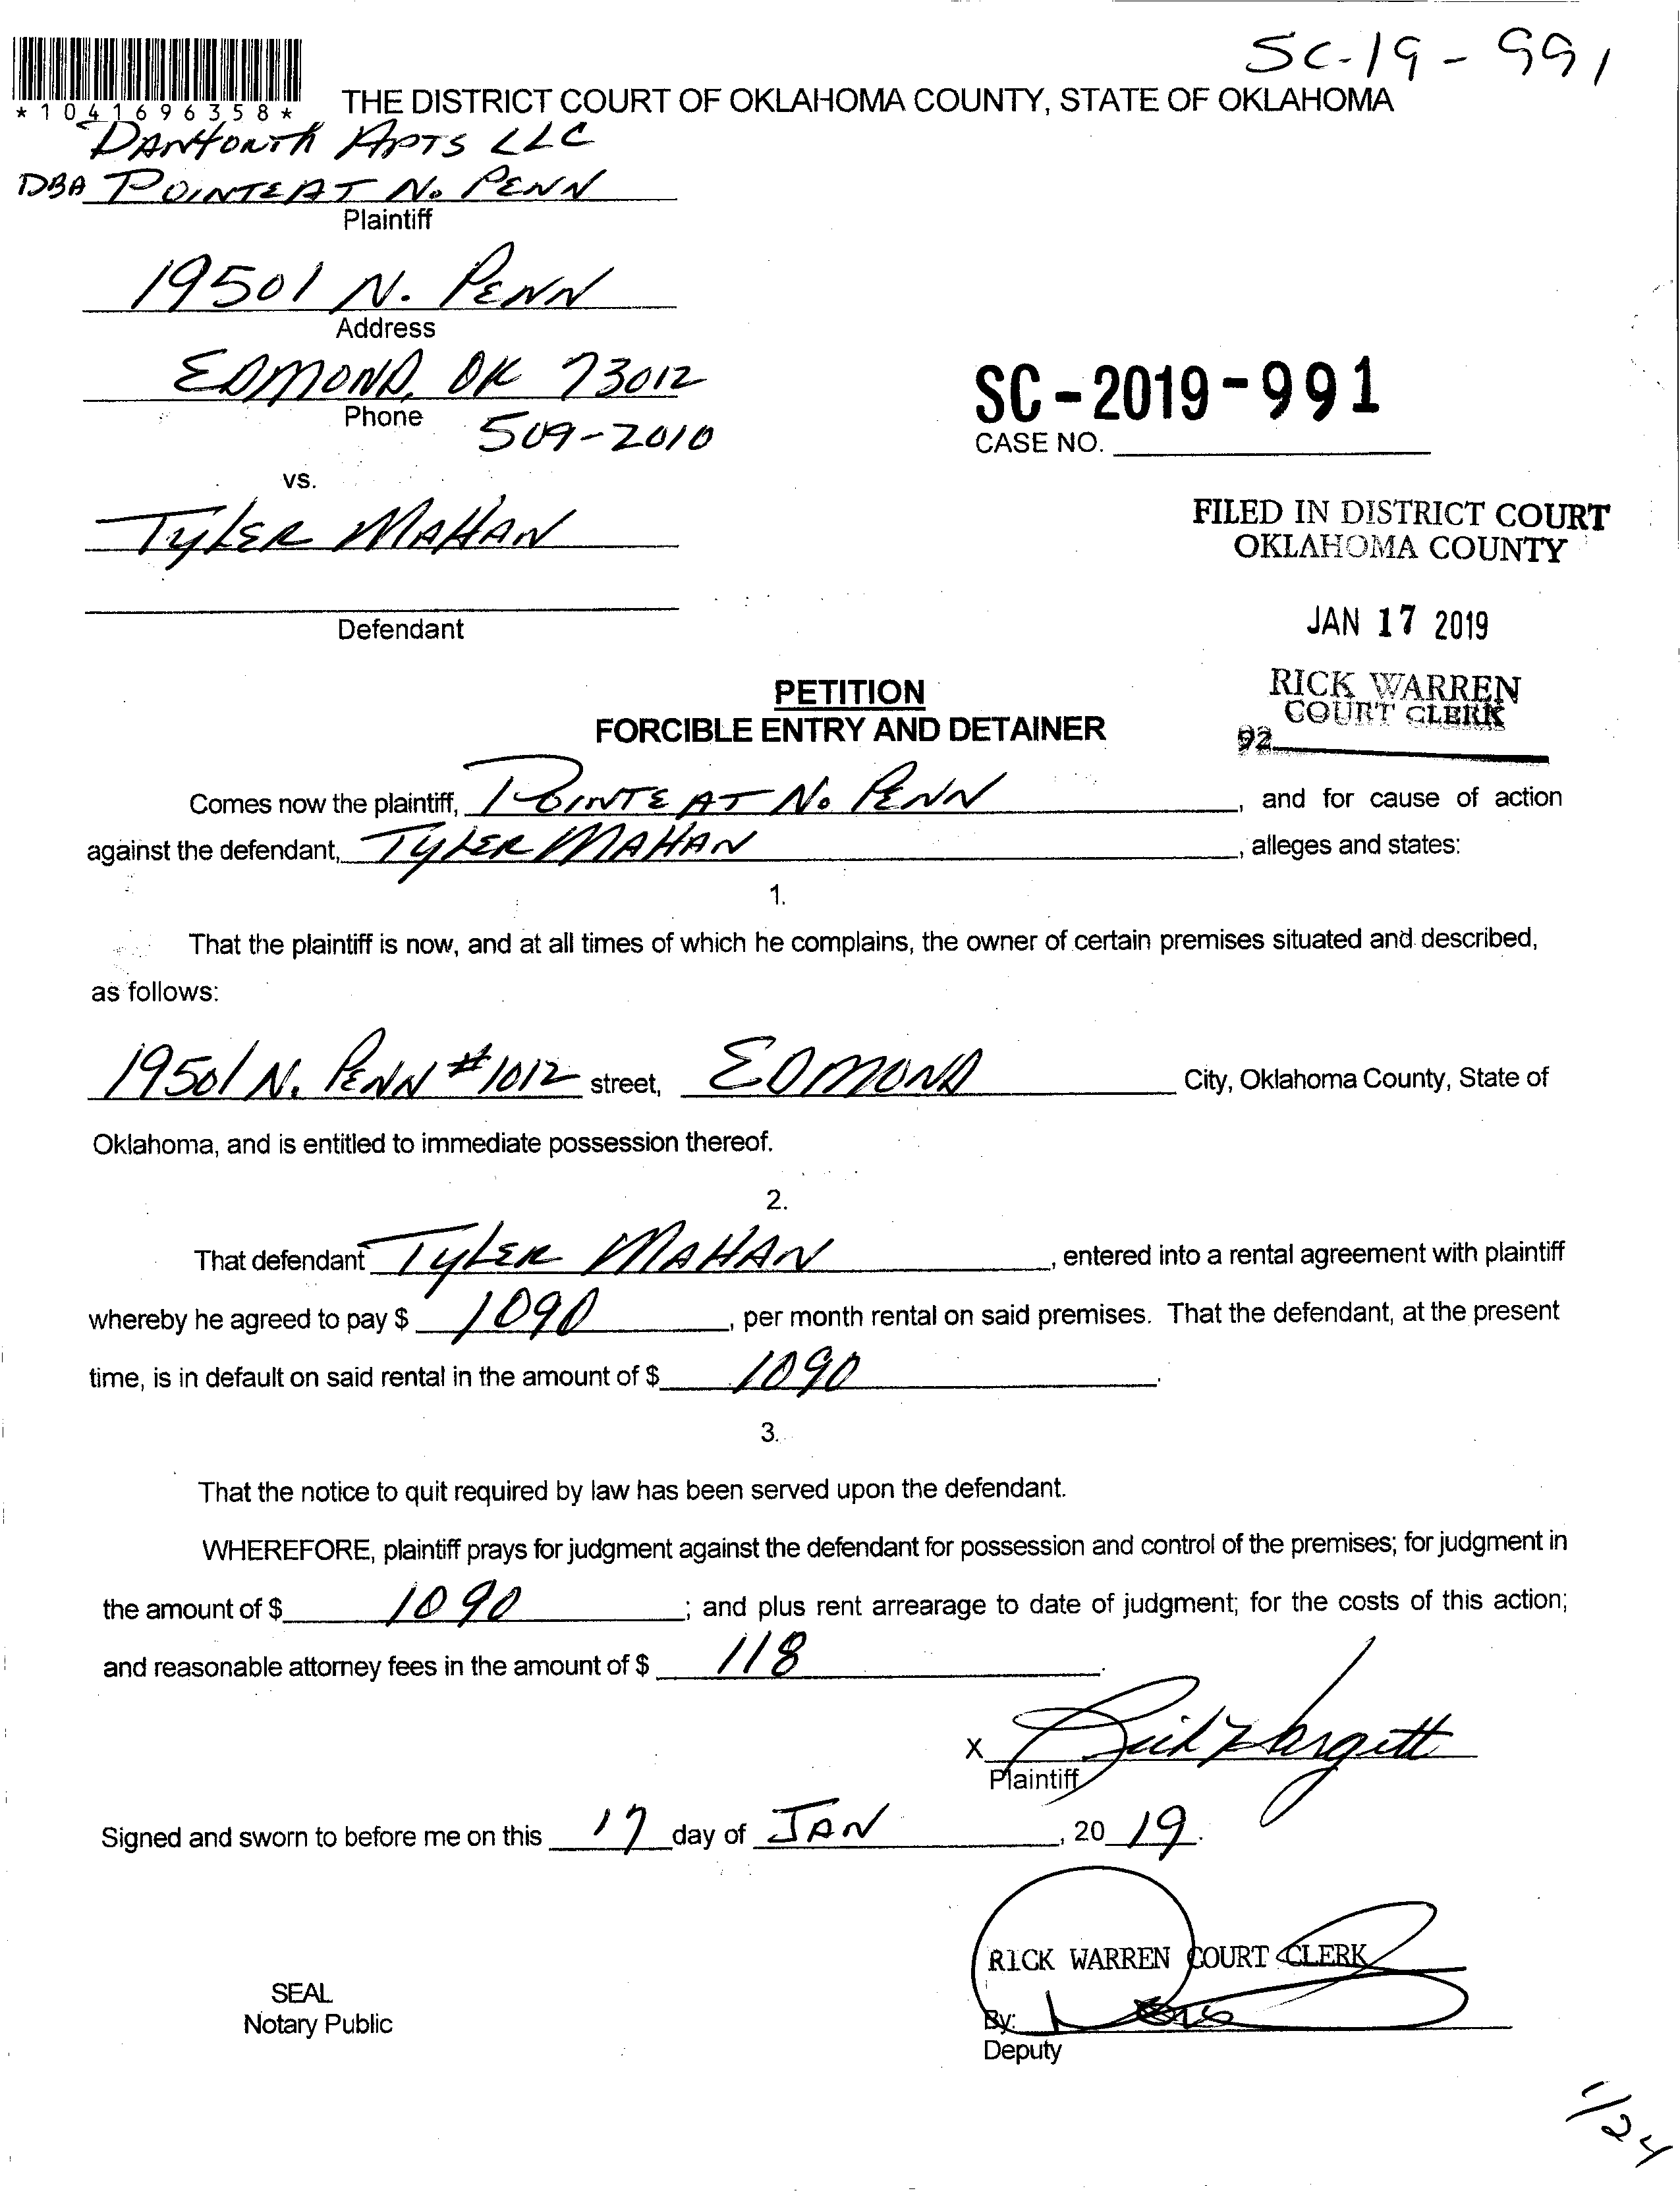 SC-19-991
*1041696358*
THE DISTRICT COURT OF OKLAHOMA COUNTY, STATE OF OKLAHOMA
DANFORTH APTS LLC
DBA POINTE AT No PENN
Plaintiff
19501 N. PENN
Address
EDMOND, OK 73012
Phone 509-2010
SC-2019-991
CASE NO.
vs.
TYLER MAHAN
Defendant
FILED IN DISTRICT COURT
OKLAHOMA COUNTY
JAN 17 2019
RICK WARREN
COURT CLERK
92
PETITION
FORCIBLE ENTRY AND DETAINER
Comes now the plaintiff, POINTE AT No PENN, and for cause of action
against the defendant, TYLER MAHAN, alleges and states:
1.
That the plaintiff is now, and at all times of which he complains, the owner of certain premises situated and described,
as follows:
19501 N. PENN #1012 street, EDMOND City, Oklahoma County, State of
Oklahoma, and is entitled to immediate possession thereof.
2.
That defendant TYLER MAHAN, entered into a rental agreement with plaintiff
whereby he agreed to pay $ 1090, per month rental on said premises. That the defendant, at the present
time, is in default on said rental in the amount of $ 1090.
3.
That the notice to quit required by law has been served upon the defendant.
WHEREFORE, plaintiff prays for judgment against the defendant for possession and control of the premises; for judgment in
the amount of $ 1090; and plus rent arrearage to date of judgment; for the costs of this action;
and reasonable attorney fees in the amount of $ 118.
X Hargett
Plaintiff
Signed and sworn to before me on this 17 day of JAN, 20 19.
RICK WARREN COURT CLERK
SEAL
Notary Public
By:
Deputy
1/24